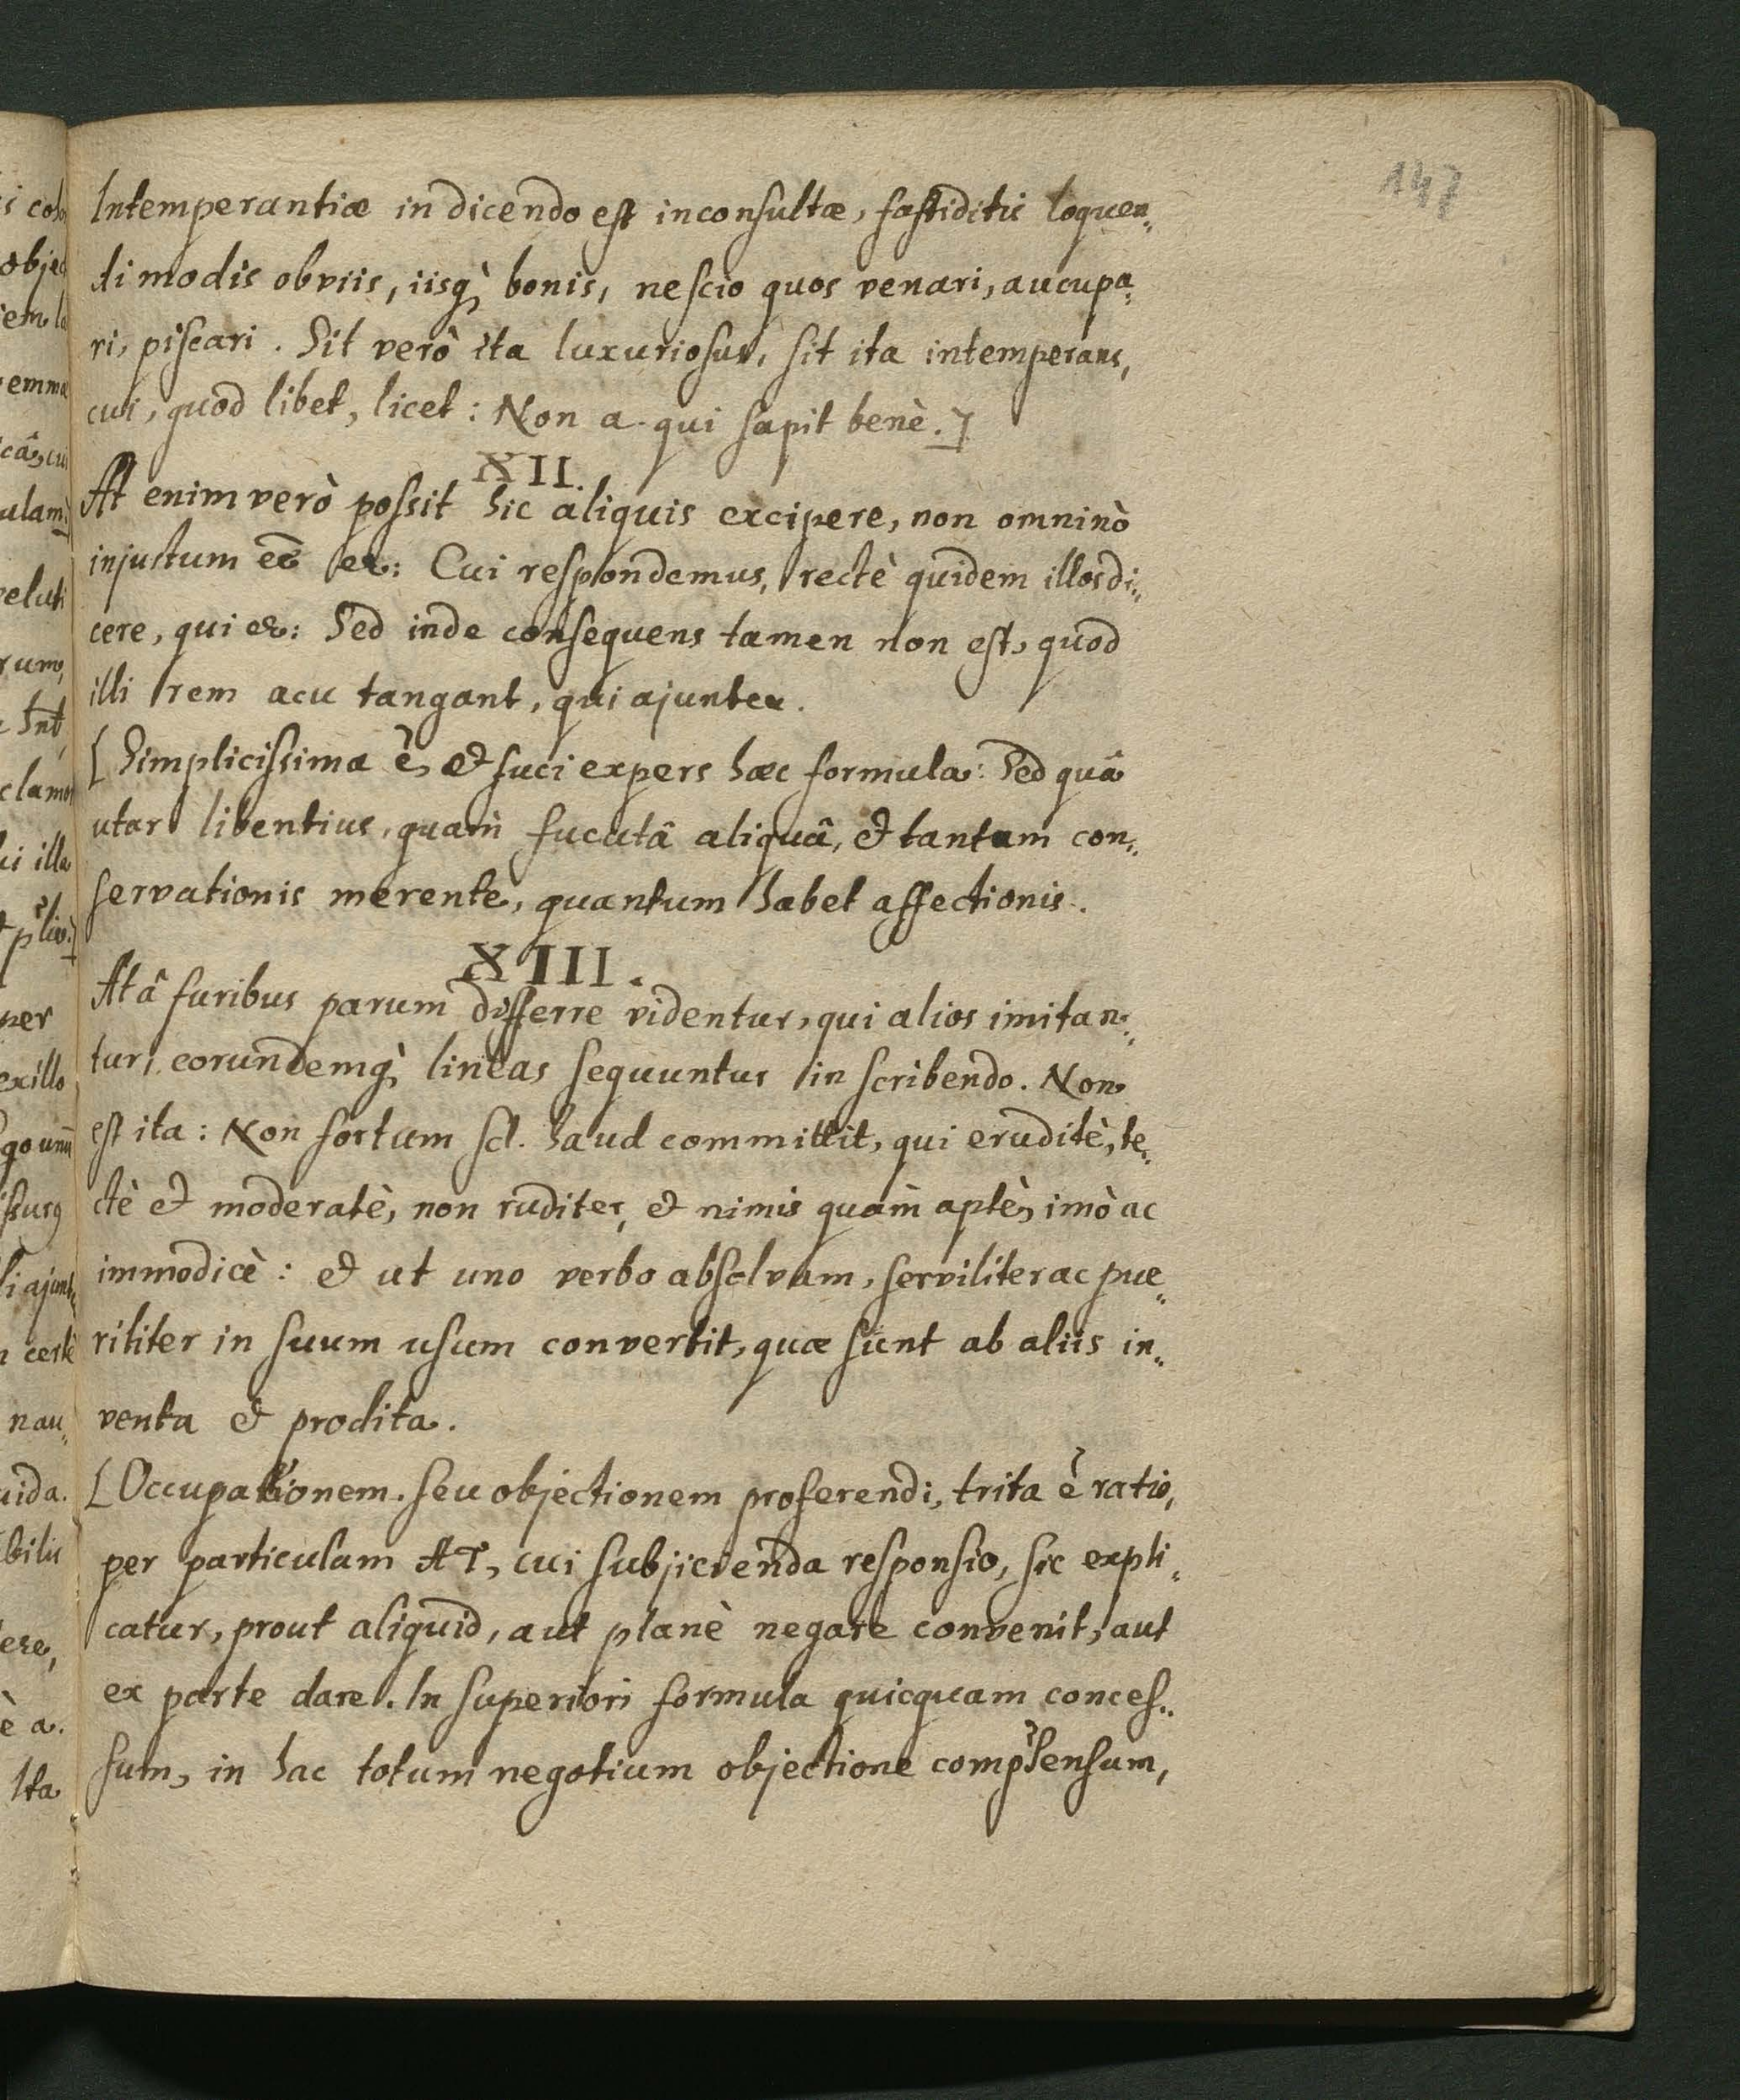 147
Intemperantiæ in dicendo est inconsultæ, fastiditis loquen„
di modis obviis, iisq̀ bonis, nescio quos venari, aucupa„
ri, piscari. Sit verò ita luxuriosus, sit ita intemperans,
cui, quod libet, licet: Non a. qui sapit benè.]
XII.
At enim verò possit hic aliquis excipere, non omninò
injustum eē &: Cui respondemus, rectè quidem illos di„
cere, qui &: Sed inde consequens tamen non est, quod
illi rem acu tangant, qui ajunt &.
[Simplicissima ē, & fuci expers hæc formula: Sed quâ
utar libentius, quam̀ fucatâ aliquâ, & tantum con„
servationis merente, quantum habet affectionis.
XIII.
At â furibus parum differre videntur, qui alios imitan„
tur, eorundemq̀ lineas sequuntur in scribendo. Non
est ita: Non fortum scl. haud committit, qui eruditè, te„
ctè & moderatè, non ruditer, & nimis quam̀ aptè, imò ac
immodicè: & ut uno verbo absolvam, serviliter ac pue„
riliter in suum usum convertit, quæ sunt ab aliis in„
venta & prodita.
[Occupationem. seu objectionem proferendi, trita ē ratio,
per particulam AT, cui subjicienda responsio, sic expli„
catur, prout aliquid, aut planè negare convenit, aut
ex parte dare. In superiori formula quicquam conces„
sum, in hac totum negotium objectione comp̉hensum,